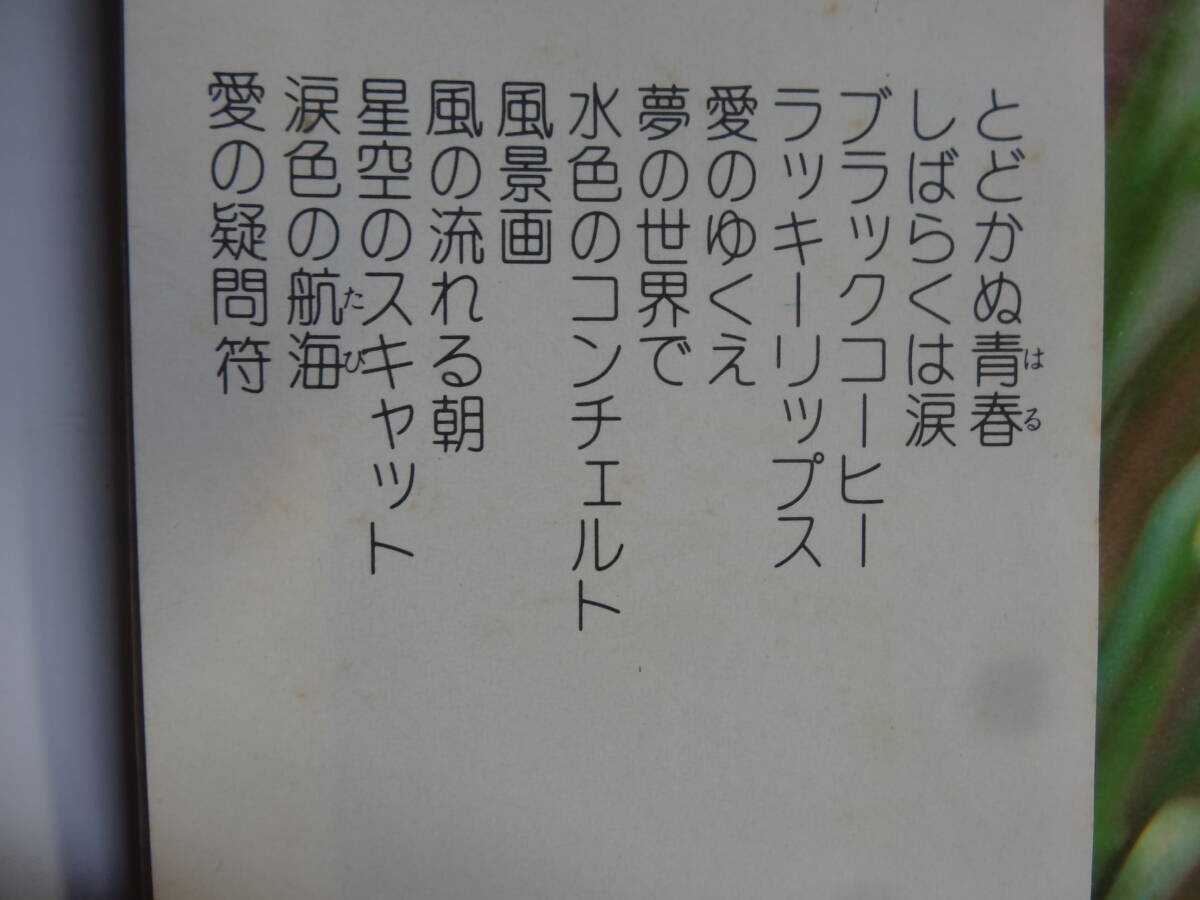 とどかぬ青春
はる
しばらくは涙
ブラックコーヒー
ラッキーリップス
愛のゆくえ
夢の世界で
水色のコンチェルト
風景画
風の流れる朝
星空のスキャット
涙色の航海
たび
愛の疑問符